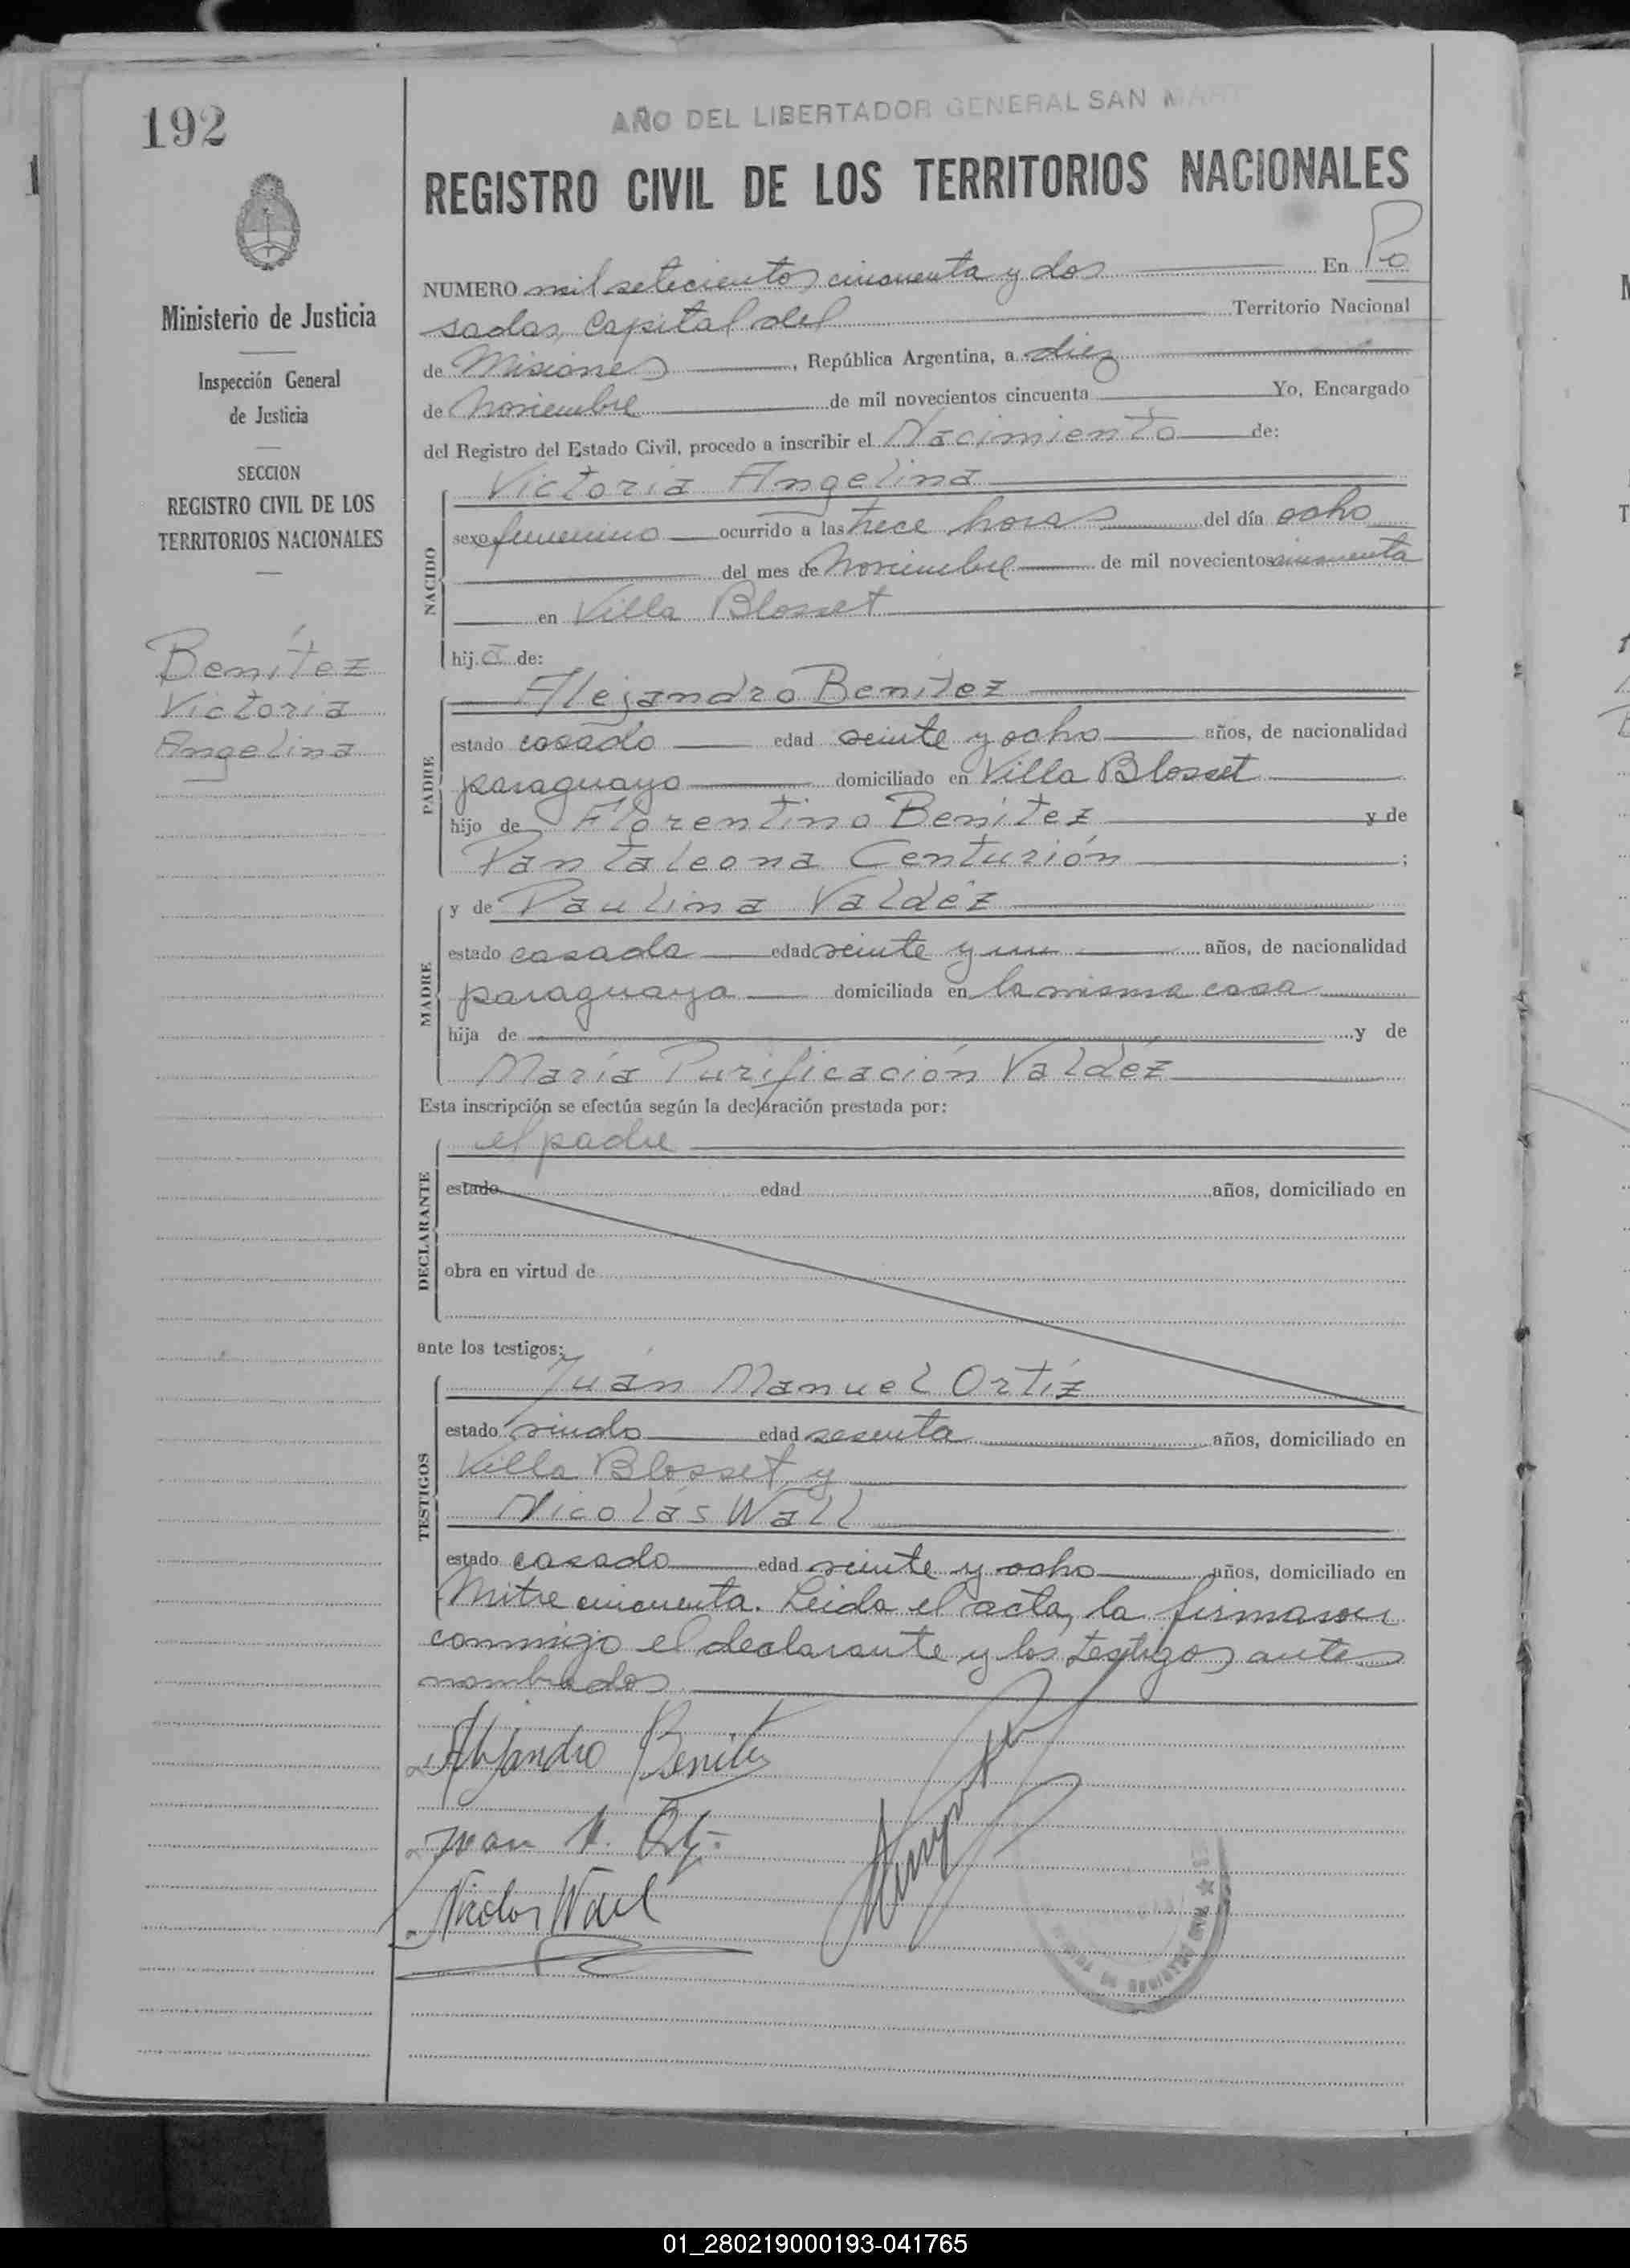 192
AÑO DEL LIBERTADOR GENERAL SAN MART
REGISTRO CIVIL DE LOS TERRITORIOS NACIONALES
Ministerio de Justicia
Inspección General
de Justicia
SECCION
REGISTRO CIVIL DE LOS
TERRITORIOS NACIONALES
Benítez
Victoria
Angelina
NUMERO mil setecientos cincuenta y dos En Po
sadas, Capital del Territorio Nacional
de Misiones, República Argentina, a diez
de Noviembre de mil novecientos cincuenta Yo, Encargado
del Registro del Estado Civil, procedo a inscribir el Nacimiento de:
NACIDO
Victoria Angelina
sexo femenino ocurrido a las trece horas del día ocho
del mes de Noviembre de mil novecientos cincuenta
en Villa Blosset
hij a de:
PADRE
Alejandro Benítez
estado casado edad veinte y ocho años, de nacionalidad
paraguayo domiciliado en Villa Blosset
hijo de Florentino Benítez y de
Pantaleona Centurión ;
MADRE
y de Paulina Valdéz
estado casada edad veinte y un años, de nacionalidad
paraguaya domiciliada en la misma casa
hija de y de
María Purificación Valdéz
Esta inscripción se efectúa según la declaración prestada por:
DECLARANTE
el padre
estado edad años, domiciliado en
obra en virtud de
ante los testigos:
TESTIGOS
Juán Manuel Ortíz
estado viudo edad sesenta años, domiciliado en
Villa Blosset y
Nicolás Wall
estado casado edad veinte y ocho años, domiciliado en
Mitre cincuenta. Leida el acta, la firmaron
conmigo el declarante y los testigos antes
nombrados
Alejandro Benitez
Juan M. Ortiz
Nicolas Wall
01_280219000193-041765